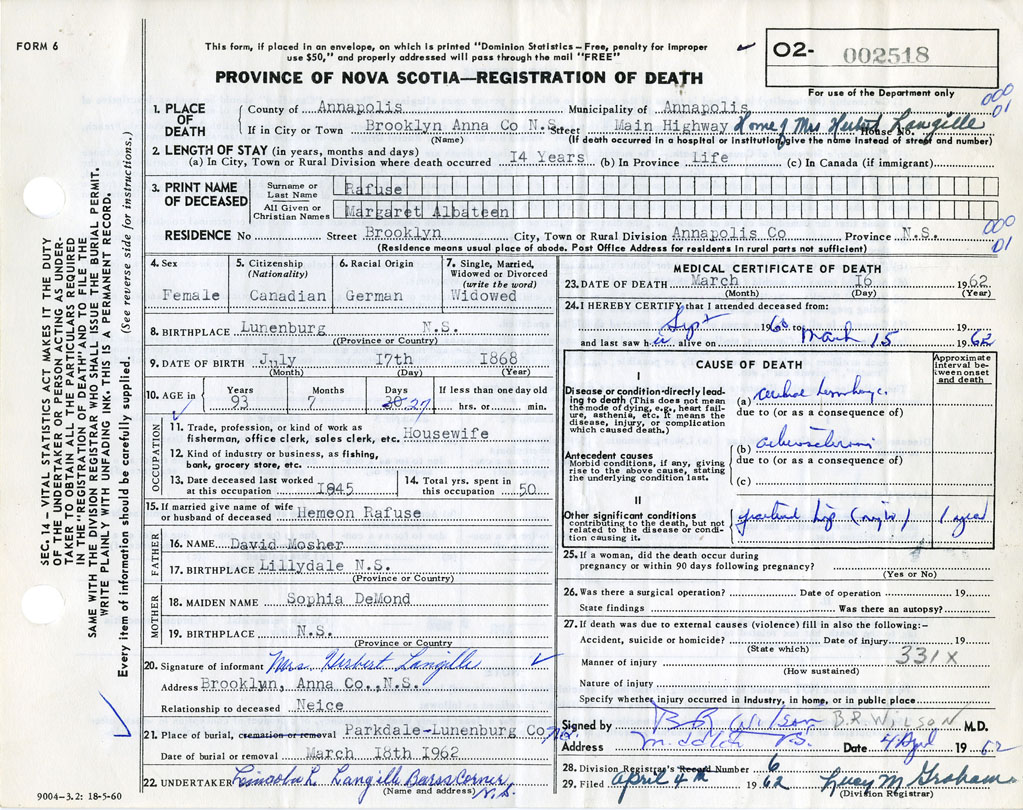 FORM 6
This form, if placed in an envelope, on which is printed "Dominion Statistics – Free, penalty for improper
use $50," and properly addressed will pass through the mail "FREE"
O2- 002518
For use of the Department only
PROVINCE OF NOVA SCOTIA—REGISTRATION OF DEATH
000
01
1. PLACE OF DEATH
County of Annapolis Municipality of Annapolis
If in City or Town Brooklyn Anna Co N.S. Street Main Highway Home of Mrs Herbert Langille House No.
(Name) (If death occurred in a hospital or institution, give the name instead of street and number)
2. LENGTH OF STAY (in years, months and days)
(a) In City, Town or Rural Division where death occurred 14 Years (b) In Province Life (c) In Canada (if immigrant)
3. PRINT NAME OF DECEASED
Surname or Last Name Rafuse
All Given or Christian Names Margaret Albateen
000
01
RESIDENCE No Street Brooklyn City, Town or Rural Division Annapolis Co Province N.S.
(Residence means usual place of abode. Post Office Address for residents in rural parts not sufficient)
SEC. 14 – VITAL STATISTICS ACT MAKES IT THE DUTY
OF THE UNDERTAKER OR PERSON ACTING AS UNDER-
TAKER TO OBTAIN ALL THE PARTICULARS REQUIRED
IN THE "REGISTRATION OF DEATH" AND TO FILE THE
SAME WITH THE DIVISION REGISTRAR WHO SHALL ISSUE THE BURIAL PERMIT.
WRITE PLAINLY WITH UNFADING INK. THIS IS A PERMANENT RECORD.
Every item of information should be carefully supplied. (See reverse side for instructions.)
4. Sex Female
5. Citizenship (Nationality) Canadian
6. Racial Origin German
7. Single, Married, Widowed or Divorced (write the word) Widowed
8. BIRTHPLACE Lunenburg N.S.
(Province or Country)
9. DATE OF BIRTH July 17th 1868
(Month) (Day) (Year)
10. AGE in Years 93 Months 7 Days 30 27 If less than one day old hrs. or min.
OCCUPATION
11. Trade, profession, or kind of work as
fisherman, office clerk, sales clerk, etc. Housewife
12. Kind of industry or business, as fishing,
bank, grocery store, etc.
13. Date deceased last worked at this occupation 1945
14. Total yrs. spent in this occupation 50
15. If married give name of wife or husband of deceased Hemeon Rafuse
FATHER
16. NAME David Mosher
17. BIRTHPLACE Lillydale N.S.
(Province or Country)
MOTHER
18. MAIDEN NAME Sophia DeMond
19. BIRTHPLACE N.S.
(Province or Country)
20. Signature of informant Mrs. Herbert Langille
Address Brooklyn, Anna Co., N.S.
Relationship to deceased Neice
21. Place of burial, cremation or removal Parkdale-Lunenburg Co N.S.
Date of burial or removal March 18th 1962
22. UNDERTAKER Lincoln L. Langille Barss Corner N.S.
(Name and address)
9004-3.2: 18-5-60
MEDICAL CERTIFICATE OF DEATH
23. DATE OF DEATH March 16 1962
(Month) (Day) (Year)
24. I HEREBY CERTIFY that I attended deceased from:
Sept 1960 to 19
and last saw her alive on March 15 1962
CAUSE OF DEATH
Approximate interval between onset and death
I
Disease or condition directly lead-
ing to death (This does not mean
the mode of dying, e.g., heart fail-
ure, asthenia, etc. It means the
disease, injury, or complication
which caused death.)
(a) cerebral hemorrhage
due to (or as a consequence of)
Antecedent causes
Morbid conditions, if any, giving
rise to the above cause, stating
the underlying condition last.
(b) arteriosclerosis
due to (or as a consequence of)
(c)
II
Other significant conditions
contributing to the death, but not
related to the disease or condi-
tion causing it.
fractured hip (right) 1 year
25. If a woman, did the death occur during
pregnancy or within 90 days following pregnancy?
(Yes or No)
26. Was there a surgical operation? Date of operation 19
State findings Was there an autopsy?
27. If death was due to external causes (violence) fill in also the following:–
Accident, suicide or homicide? Date of injury 19
(State which)
331X
Manner of injury
(How sustained)
Nature of injury
Specify whether injury occurred in industry, in home, or in public place
Signed by B R Wilson B.R. WILSON M.D.
Address N.S. Date 4 April 1962
28. Division Registrar's Record Number 6
29. Filed April 4th 1962 Lucy M Graham
(Division Registrar)